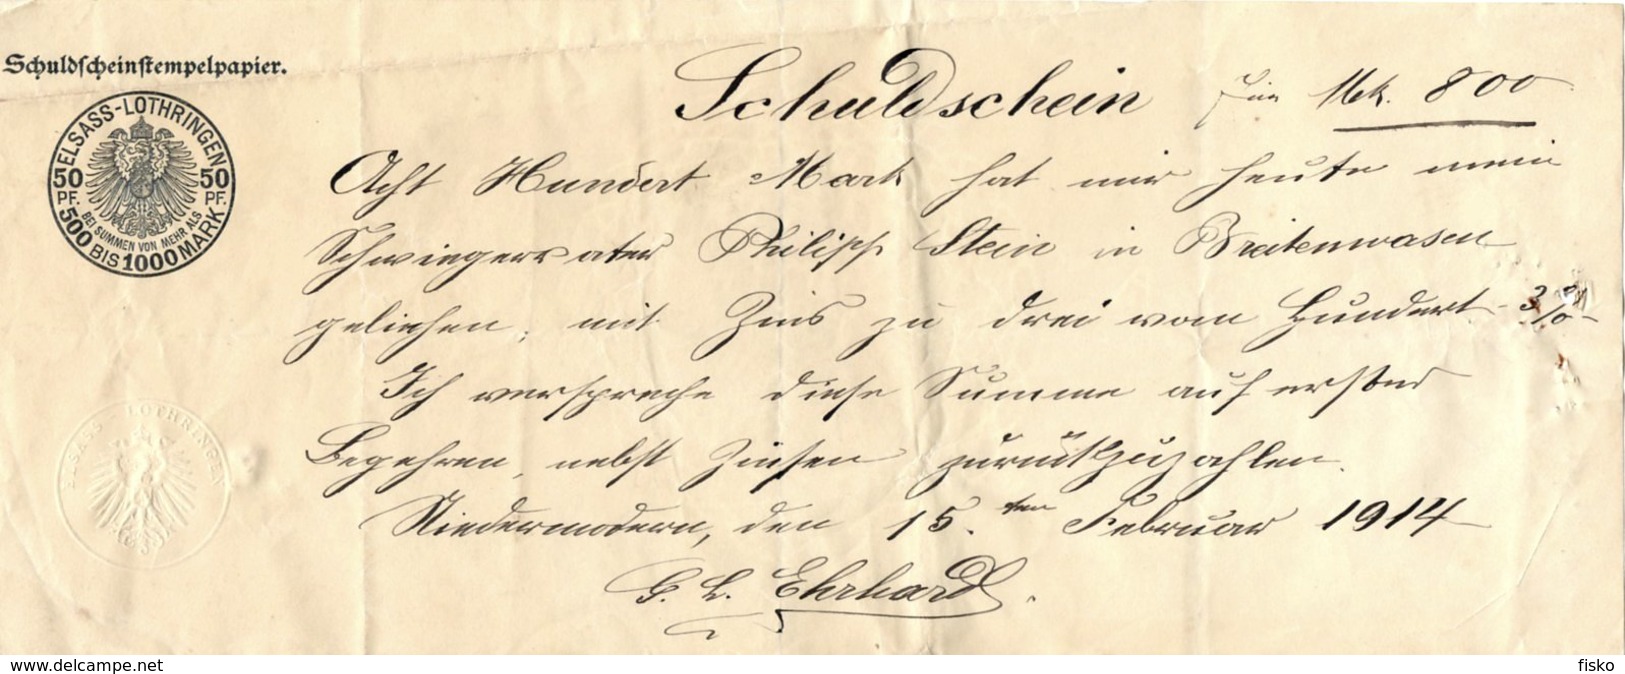 Schuldscheinstempelpapier.
ELSASS-LOTHRINGEN
50 PF.
50 PF.
BEI SUMMEN VON MEHR ALS
500 BIS 1000 MARK
ELSASS LOTHRINGEN
Schuldschein für Mk. 800
Acht Hundert Mark hat mir heute mein
Schwiegervater Philipp Stein in Breitenwasen
geliehen, mit Zins zu drei vom Hundert 3%
Ich verspreche diese Summe auf erstes
Begehren, nebst Zinsen zurückzuzahlen.
Niedermodern, den 15.ten Februar 1914
G. L. Ehrhard.
www.delcampe.net
fisko